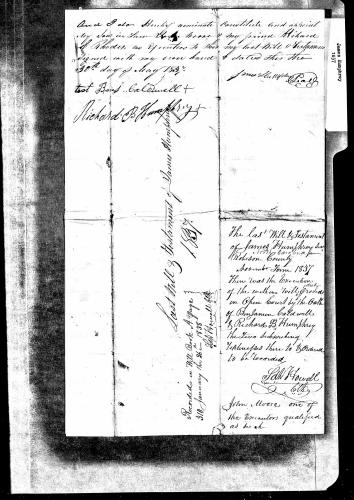 And I also
nominate Constitute and appoint
my Son in Law John Moore & my friend Richard
C Rhodes as Executors to this my last Will & Testament
Signed with my own hand & dated this the
30th day of May 1837
James Humphrey Seal
test Benj Caldwell +
Richard B Humphrey +
Last Will & Testament of James Humphrey
1837
Recorded in Will Book A Page
310 January the 26th 1838
Shff Howell Clk
The last Will & Testament
of James Humphrey
Robeson County
Court June 1837
Then was the Execution
of the within Will proved
in Open Court by the Oath
of Benjamin Caldwell
& Richard B Humphrey
the Two Subscribing
Witnesses thereto & Ordered
to be recorded
Howell
Clk
John Moore one of
the Executors qualified
as such
James Humphrey
1837